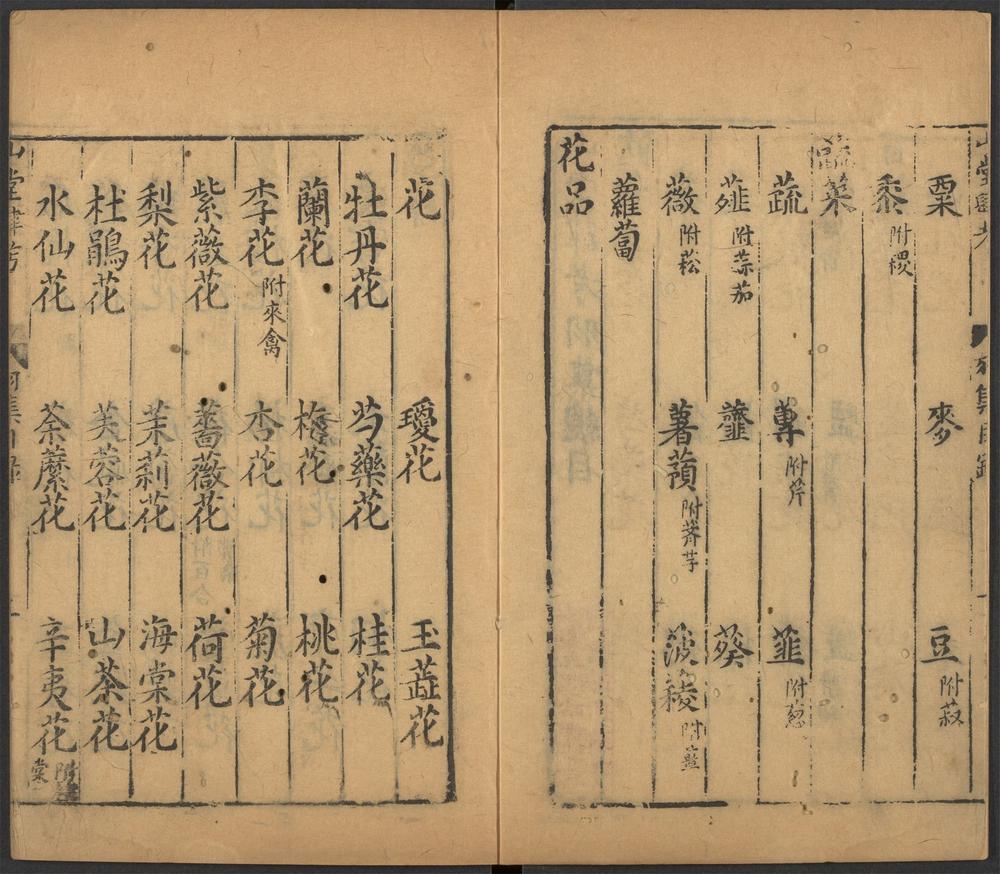 粟 麥 豆附菽
黍附稷
菜
蔬 蓴附芹 韮附葱
薤附蒜茄 虀 葵
薇附菘 薯蕷附薺芋 菠稜附藍
蘿蔔
花品
花 瓊花 玉蕋花
牡丹花 芍藥花 桂花
蘭花 梅花 桃花
李花附來禽 杏花 菊花
紫薇花 薔薇花 荷花
梨花 茉莉花 海棠花
杜鵑花 芙蓉花 山茶花
水仙花 荼蘼花 辛夷花附棣棠